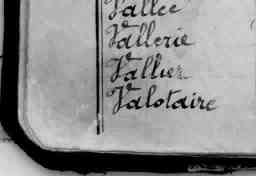 Vallee
Vallerie
Vallier
Valotaire